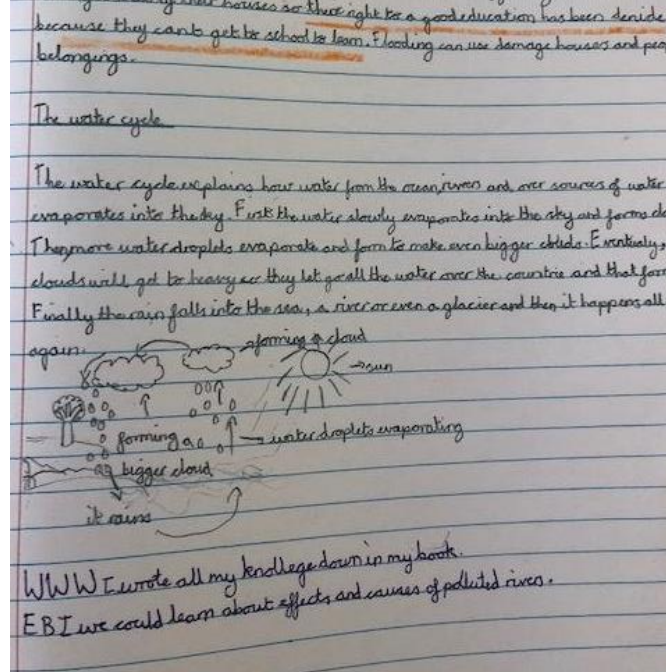 their houses so there right to a good education has been denide
because they can't get to school to learn. Flooding can use damage houses and peo
belongings.
The water cycle
The water cycle explains how water from the ocean, rivers and over sources of water
evaporates into the sky. First the water slowly evaporates into the sky and forms clo
Then more water droplets evaporate and form to make even bigger clouds. Eventualy,
clouds will get to heavy so they let go all the water over the countrie and that for
Finally the rain falls into the sea, a river or even a glacier and then it happens all
again.
forming a cloud
sun
forming a
water droplets evaporating
bigger cloud
it rains
WWW I wrote all my knollege down in my book.
EBI we could learn about effects and causes of polluted rivers.